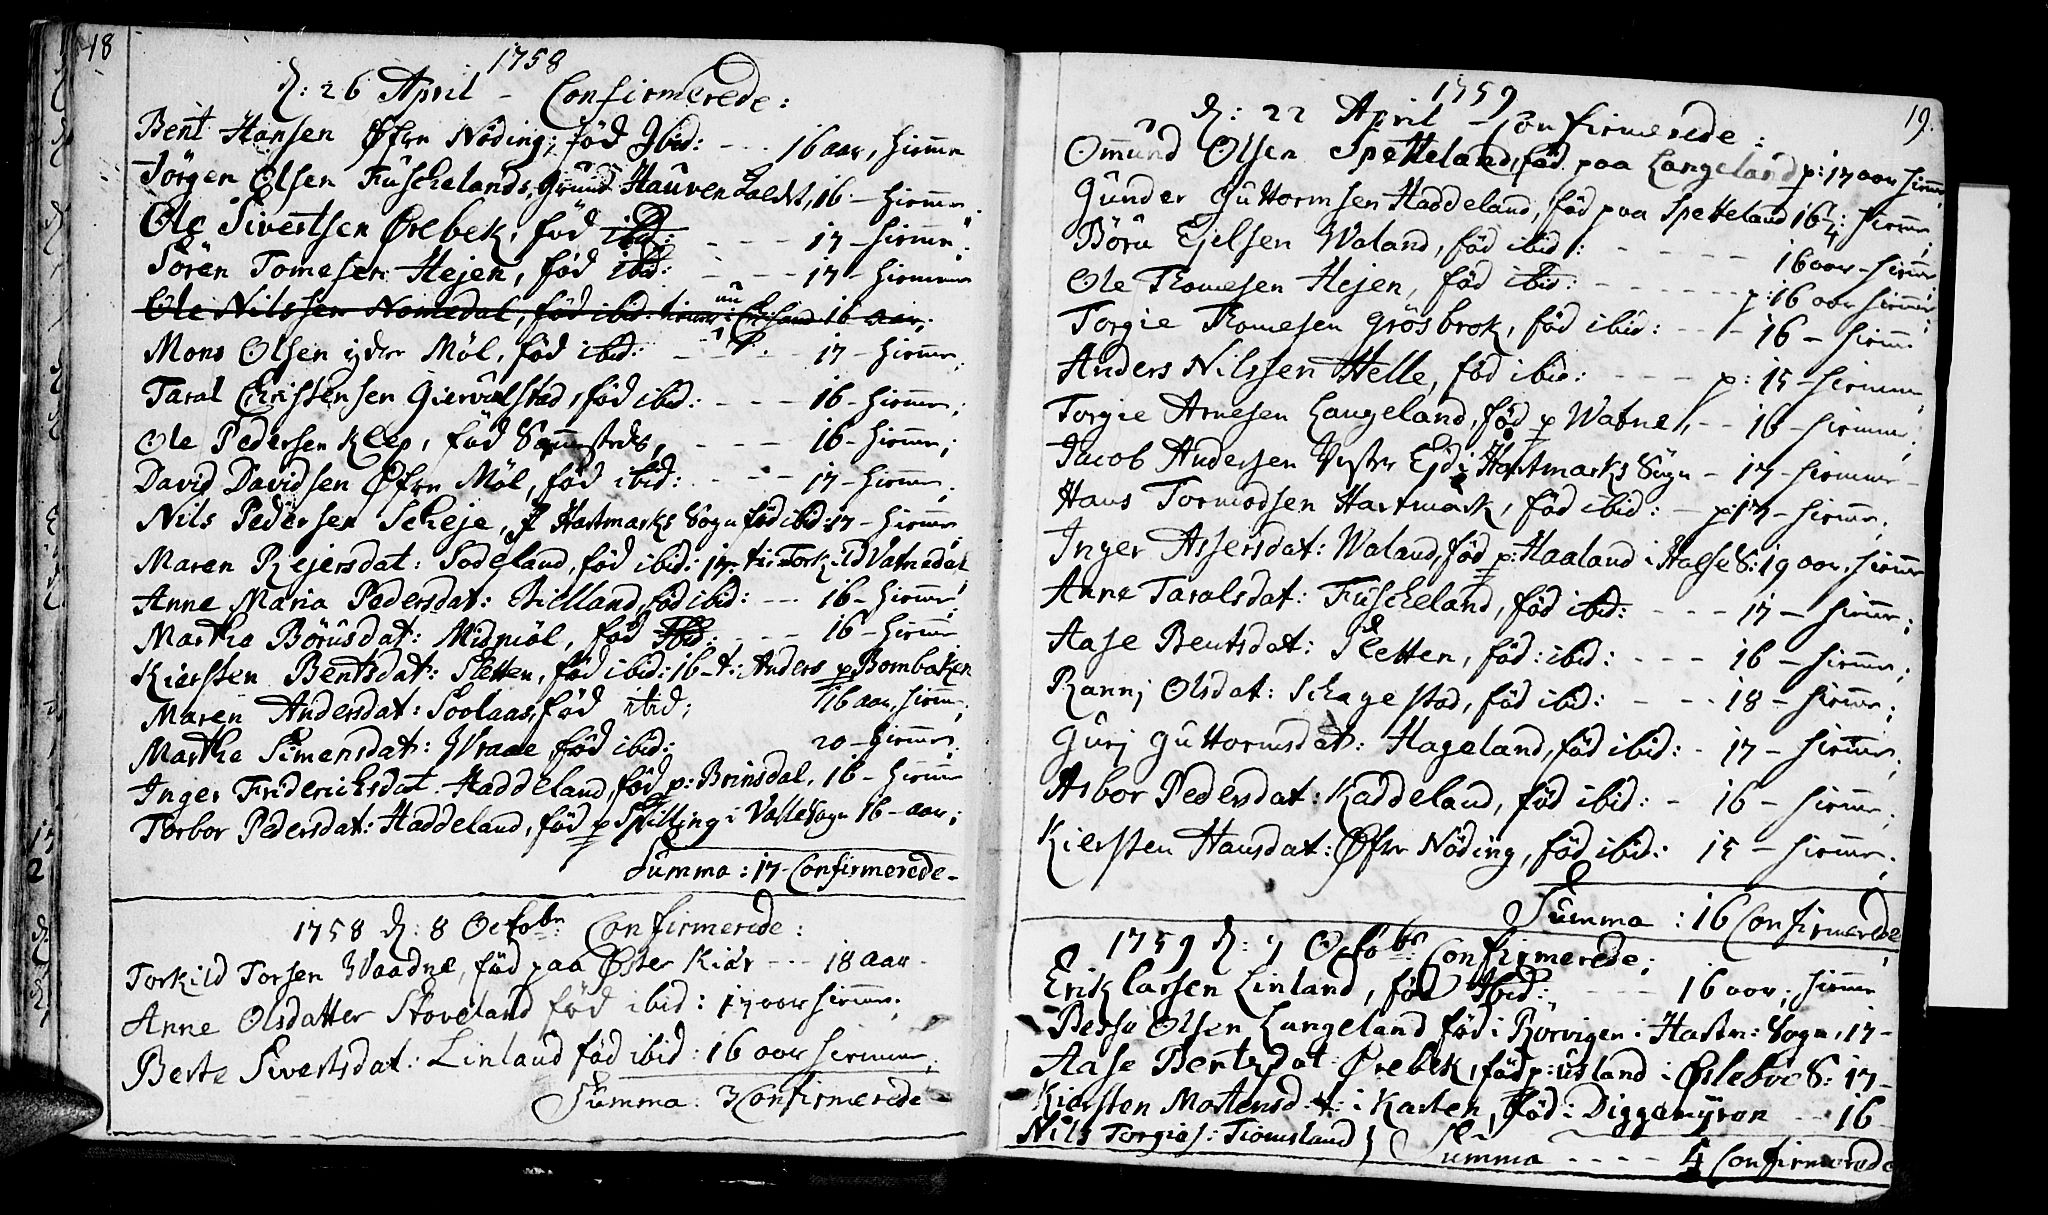 18
1758
d: 26 April - Confirmerede:
Bent Hansen Øfre Nöding, föd Ibid: --- 16 aar, hiemme
Jörgen Olsen Fuskelands Grund Hauven kaldt, 16 - hiemme.
Ole Sivertsen Ørebek, föd ibid: --- 17 - hiemme.
Sören Tomesen Hejen, föd ibid: --- 17 - hiemme
Ole Nilssen Nomedal, föd ibid: nu i Chrsand 16 aar,
Mons Olsen yder Möl, föd ibid: --- 17 - hiemme,
Taral Christensen Giervalstad, föd ibid: --- 16 - hiemme;
Ole Pedersen Klep, föd Sammesteds, --- 16 - hiemme;
David Davidsen Øfre Möl, föd ibid: --- 17 - hiemme;
Nils Pedersen Skeje, i Hartmarks Sogn föd ibid: 17 - hiemme
Maren Rejersdat: Sodeland, föd ibid: 17 - t: Torkild Vatnedal
Anne Maria Pedersdat: Bielland, föd ibid: --- 16 - hiemme;
Marthe Börusdat: Midmöl, föd Ibid: --- 16 - hiemme
Kiersten Bentsdat: Sletten, föd ibid: 16 - t: Anders p Bombaken
Maren Andersdat: Soolaas, föd ibid; 16 aar, hiem;
Marthe Simensdat: Wraae föd ibid: 20 - hiemme.
Inger Friderichsdat Haddeland, föd p: Brinsdal, 16 - hiemme
Torbor Pedersdat: Haddeland, föd p Spilling i Valle Sogn 16 - aar;
Summa: 17 - Confirmerede -
1758 d: 8 Octobr: Confirmerede:
Torkild Torsen Waadne, föd paa Øster Kiär --- 18 aar -
Anne Olsdatter Stoveland föd ibid: 17 aar hiemme.
Berte Sivertsdat: Linland föd ibid: 16 aar hiemme;
Summa. 3 Confirmerede -
19.
1759
d: 22 April - Confirmerede:
Omund Olsen Spetteland, föd paa Langeland p: 17 aar hiemme
Gunder Guttormsen Haddeland, föd paa Spetteland 16 1/4: hiemme;
Böru Ejelsen Waland, föd ibid: --- 16 aar - hiemme
Ole Thomesen Hejen, föd ibid: --- p: 16 aar hiemme;
Torgie Thomesen Grösbrok, föd ibid: --- 16 - hiemme
Anders Nilssen Helle, föd ibid: --- p: 15 - hiemme,
Torgie Arnesen Langeland, föd p Watne, -- 16 - hiemme;
Jacob Andersen Vester Ejd i Hartmarks Sogn - 17 - hiemme -
Hans Tormodsen Hartmark, föd ibid: - p: 17 - hiemme,
Inger Assersdat: Waland, föd p: Haaland i Halse S: 19 aar, hiemme
Anne Taralsdat: Fuskeland, föd ibid: --- 17 - hiemme;
Aase Bentsdat: Sletten, föd: ibid: --- 16 - hiemme;
Rannj Olsdat: Skagestad, föd ibid: --- 18 - hiemme;
Gurj Guttormsdat: Hageland, föd ibid: - 17 - hiemme,
Asbor Pedersdat: Kaddeland, föd ibid: - 16 - hiemme,
Kiersten Hansdat: Øfre Nöding, föd ibid: 15 - hiemme.
Summa: 16 Confirmerede,
1759 d: 7 Octobr: Confirmerede;
Erik Larsen Linland, föd Ibid: --- 16 aar, hiemme
Berso Olsen Langeland föd i Rorvigen i Hartm: Sogn, 17 -
Aase Bentsdat Ørebek, föd p: usland i Øslebve S: 17 -
Kiersten Mortensd. t: i Kasten, föd: Diggemyran -- 16
Nils Torgies: Tiomsland } Summa ---- 4 Confirmerede